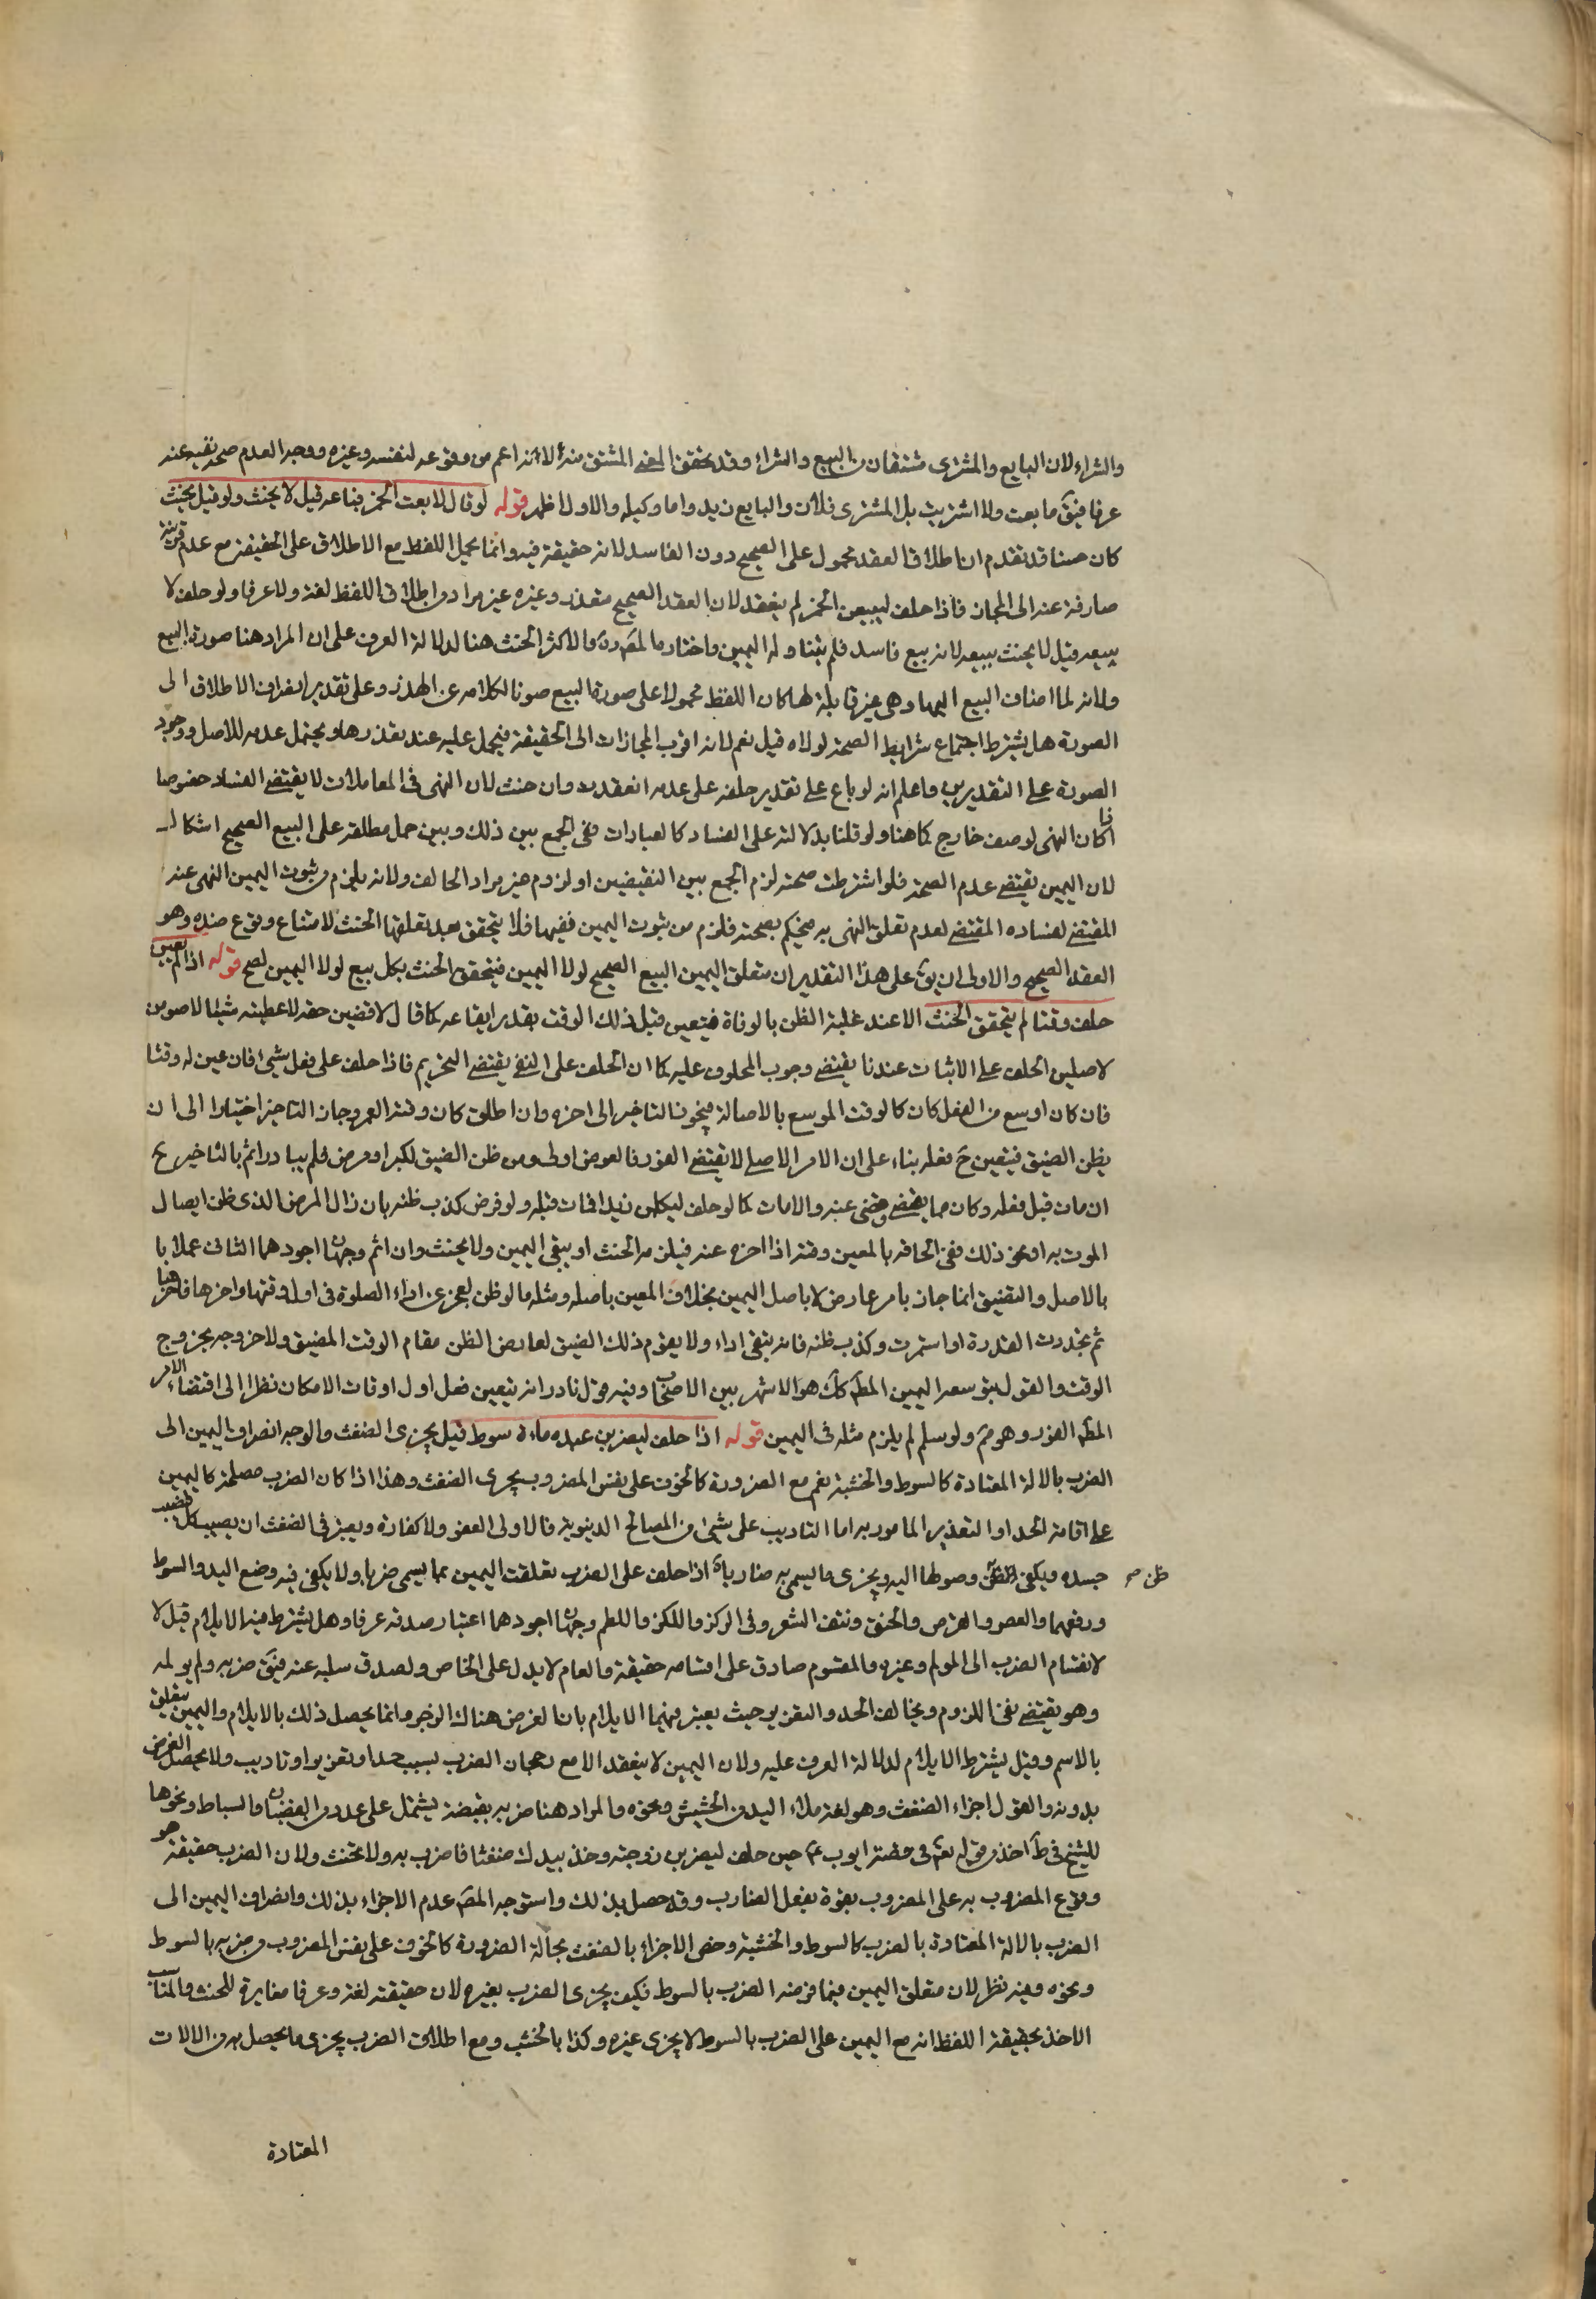 والشراء لان البايع والمشترى مشتقان من البيع والشراء وقد تحقق المعنى المشتق منه الا انه اعم من وقوعه لنفسه وغيره ووجه العدم صحة نفيه عنه
عرفا فيق ما بعت ولا اشتريت بل المشترى فلان والبايع زيد واما وكيله والاول اظهر قوله لو قال لا بعت الخمر فباعه قيل لا يحنث ولو قيل يحنث
كان حسنا قد تقدم ان اطلاق العقد محمول على الصحيح دون الفاسد لانه حقيقة فيه وانما يحمل اللفظ مع الاطلاق على الحقيقة مع عدم قرينة
صارفة عنه الى المجاز فاذا حلف ليبيعن الخمر لم ينعقد لان العقد الصحيح متعذر وغيره غير مراد من اطلاق اللفظ لغة ولا عرفا ولو حلف لا
يبيعه قيل لا يحنث ببيعه لانه بيع فاسد فلم يتناوله اليمين واختار المص ره والاكثر الحنث هنا لدلالة العرف على ان المراد هنا صورة البيع
ولانه لما اضاف البيع اليها وهى غير قابلة لها كان اللفظ محمولا على صورة البيع صونا لكلامه عن الهذر وعلى تقدير انصراف الاطلاق الى
الصورة هل يشترط اجتماع شرايط الصحة لولاه قيل نعم لانه اقرب المجازات الى الحقيقة فيحمل عليه عند تعذرها ويحتمل عدمه للاصل ووجود
الصورة على التقديرين واعلم انه لو باع على تقدير حلفه على عدمه انعقدت وان حنث لان النهى فى المعاملات لا يقتضى الفساد خصوصا
اذا كان النهى لوصف خارج كما هنا ولو قلنا بدلالته على الفساد كالعبادات ففى الجمع بين ذلك وبين حمل مطلقه على البيع الصحيح اشكال
لان اليمين يقتضى عدم الصحة فلو اشترطت صحته لزم الجمع بين النقيضين او لزوم غير مراد الحالف ولانه يلزم من ثبوت اليمين النهى عنه
المقتضى لفساده المقتضى لعدم تعلق النهى به فيحكم بصحته فلزم من ثبوت اليمين نفيها فلا يتحقق بعد تعلقها الحنث لامتناع وقوع ضده وهو
العقد الصحيح والاولى ان يق على هذا التقدير ان متعلق اليمين البيع الصحيح لولا اليمين فيتحقق الحنث بكل بيع لولا اليمين لصح قوله اذا لم يعين
حلف وقتا لم يتحقق الحنث الا عند غلبة الظن بالوفاة فيتعين قبل ذلك الوقت بقدر ايقاعه كما قال لاقضين حقه لاعطينه شيئا لاصومن
لاصلين الحلف على الاثبات عندنا يقتضى وجوب المحلوف عليه كما ان الحلف على النفى يقتضى التحريم فاذا حلف على فعل شئ فان عين له وقتا
فان كان اوسع من الفعل كان كالوقت الموسع بالاصالة فيجوز التاخير الى اخره وان اطلق كان وقته العمر وجاز التاخير اختيارا الى ان
يظن الضيق فيتعين ح فعله بناء على ان الامر الاصلى لا يقتضى الفور فالعرض اولى ومن ظن الضيق لكبر او مرض فلم يبادر اثم بالتاخير ح
ان مات قبل فعله وكان مما يقضى قضى عنه والا فات كما لو حلف ليكلمن زيدا فمات قبله ولو فرض كذب ظنه بان زال المرض الذى ظن ايصال
الموت به او نحو ذلك ففى الحاقه بالمعين وقته اذا اخره عنه فيلزمه الحنث او يبقى اليمين ولا يحنث وان اثم وجهان اجودهما الثانى عملا با
بالاصل والتضيق انما جاز بامر عارض لا باصل اليمين بخلاف المعين باصله ومثله ما لو ظن لعجز عن اداء الصلوة فى اول وقتها واخرها فاخرها
ثم تجددت القدرة او استمرت وكذب ظنه فانه يبقى اداء ولا يقوم ذلك الضيق لعارض الظن مقام الوقت المضيق ولاخر وجه بخروج
الوقت والقول بتوسعه اليمين المط كك هو الاشهر بين الاصحاب وفيه قول نادر انه يتعين فعل اول اوقات الامكان نظرا الى اقتضاء الامر
المط الفور وهو مم ولو سلم لم يلزم مثله فى اليمين قوله اذا حلف ليضربن عبده مائة سوط قيل يجزى الضغث والوجه انصراف اليمين الى
الضرب بالالة المعتادة كالسوط والخشبة نعم مع الضرورة كالخوف على نفس المضروب يجزى الضغث وهذا اذا كان الضرب مصلحة كاليمين
على اقامة الحد او التعزير المامور به اما التاديب على شئ من المصالح الدنيوية فالاولى العفو ولا كفارة ويعتبر فى الضغث ان يصيب كل قضيب
جسده ويكفى الظن وصولها اليه ويجزى ما يسمى به ضاربا اذا حلف على الضرب تعلقت اليمين بما يسمى ضربا ولا يكفى فيه وضع اليد والسوط
ظن صح
ورفعهما والعض والقرص والخنق ونتف الشعر وفى الركز واللكز واللطم وجهان اجودهما اعتبار صدقه عرفا وهل يشترط فيه الايلام قيل لا
لانقسام الضرب الى المولم وغيره والمقسوم صادق على اقسامه حقيقة والعام لا يدل على الخاص ولصدق سلبه عنه فيق ضربه ولم يولمه
وهو يقتضى نفى اللزوم ويخالف الحد والتعزير حيث يعتبر فيهما الايلام بان الغرض هناك الزجر وانما يحصل ذلك بالايلام واليمين يتعلق
بالاسم وقيل يشترط الايلام لدلالة العرف عليه ولان اليمين لا ينعقد الا مع رجحان الضرب بسبب حد او تعزير او تاديب ولا يحصل الغرض
بدونه والقول اجزاء الضغث وهو لغة ملاء اليد من الحشيش ونحوه والمراد هنا ضربه بقبضة يشتمل على عدد من القضبان والسياط ونحوها
للشيخ فى ط اخذ من قوله تع فى قصة ايوب ع حين حلف ليضربن زوجته وخذ بيدك ضغثا فاضرب به ولا تحنث ولان الضرب حقيقة هو
وقوع المضروب به على المضروب بقوة بفعل الضارب وقد حصل بذلك واستوجه المص عدم الاجزاء بذلك وانصراف اليمين الى
الضرب بالالة المعتادة بالضرب كالسوط والخشبة وخص الاجزاء بالضغث بحالة الضرورة كالخوف على نفس المضروب وضربه بالسوط
ونحوه وفيه نظر لان متعلق اليمين فيما فرضه الضرب بالسوط فكيف يجزى الضرب بغيره لان حقيقته لغة وعرفا مغايرة للحنث والمناسب
الاخذ بحقيقة اللفظ انه مع اليمين على الضرب بالسوط لا يجزى غيره وكذا بالخشب ومع اطلاق الضرب يجزى ما يحصل به من الالات
المعتادة